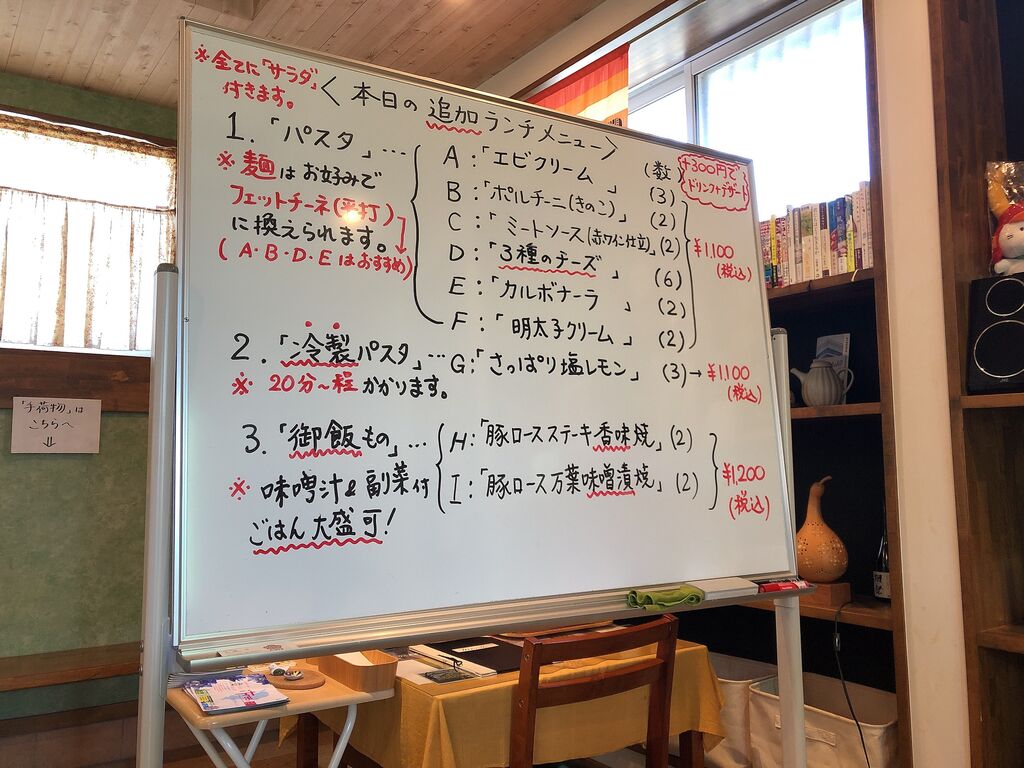 ※全てに「サラダ」
付きます。
〈本日の追加ランチメニュー〉
+300円で
ドリンク+デザート
1.「パスタ」…
※麺はお好みで
フェットチーネ(平打)
に換えられます。
(A・B・D・Eはおすすめ)
(数)
A:「エビクリーム」(3)
B:「ポルチーニ(きのこ)」(2)
C:「ミートソース(赤ワイン仕立)」(2)
D:「3種のチーズ」(6)
E:「カルボナーラ」(2)
F:「明太子クリーム」(2)
¥1,100
(税込)
2.「冷製パスタ」… G:「さっぱり塩レモン」(3)→¥1,100
(税込)
※20分〜程かかります。
3.「御飯もの」…
※味噌汁&副菜付
ごはん大盛可!
H:「豚ロースステーキ香味焼」(2)
I:「豚ロース万葉味噌漬焼」(2)
¥1,200
(税込)
「手荷物」は
こちらへ
⇓